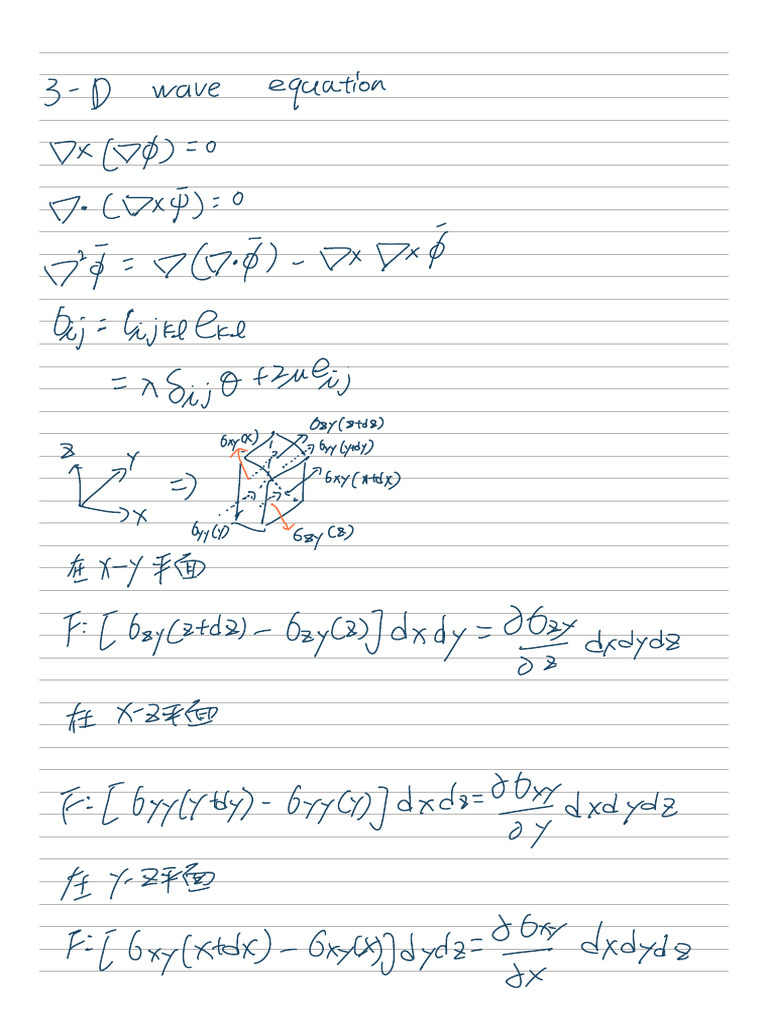 3-D wave equation
∇×(∇ϕ)=0
∇·(∇×ψ̄)=0
∇²ϕ̄ = ∇(∇·ϕ̄) - ∇×∇×ϕ̄
σij = Cijkl ekl
= λδijθ + 2μeij
σzy(z+dz)
σxy(x) σyy(y+dy)
z y ⇒ σxy(x+dx)
x
σyy(y) σzy(z)
在 x-y 平面
F: [σzy(z+dz) - σzy(z)]dxdy = ∂σzy/∂z dxdydz
在 x-z平面
F: [σyy(y+dy) - σyy(y)]dxdz = ∂σxy/∂y dxdydz
在 y-z平面
F: [σxy(x+dx) - σxy(x)]dydz = ∂σxy/∂x dxdydz